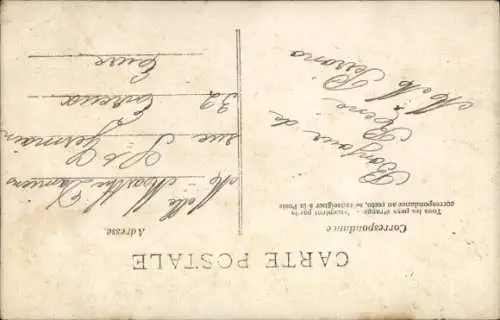 CARTE POSTALE
Correspondance
Tous les pays étrangers n'acceptent pas la
correspondance au recto, se renseigner à la Poste
Adresse
Bonjour de
René
M et M
Melle
Marthe
St Germain
32
Evreux
Eure